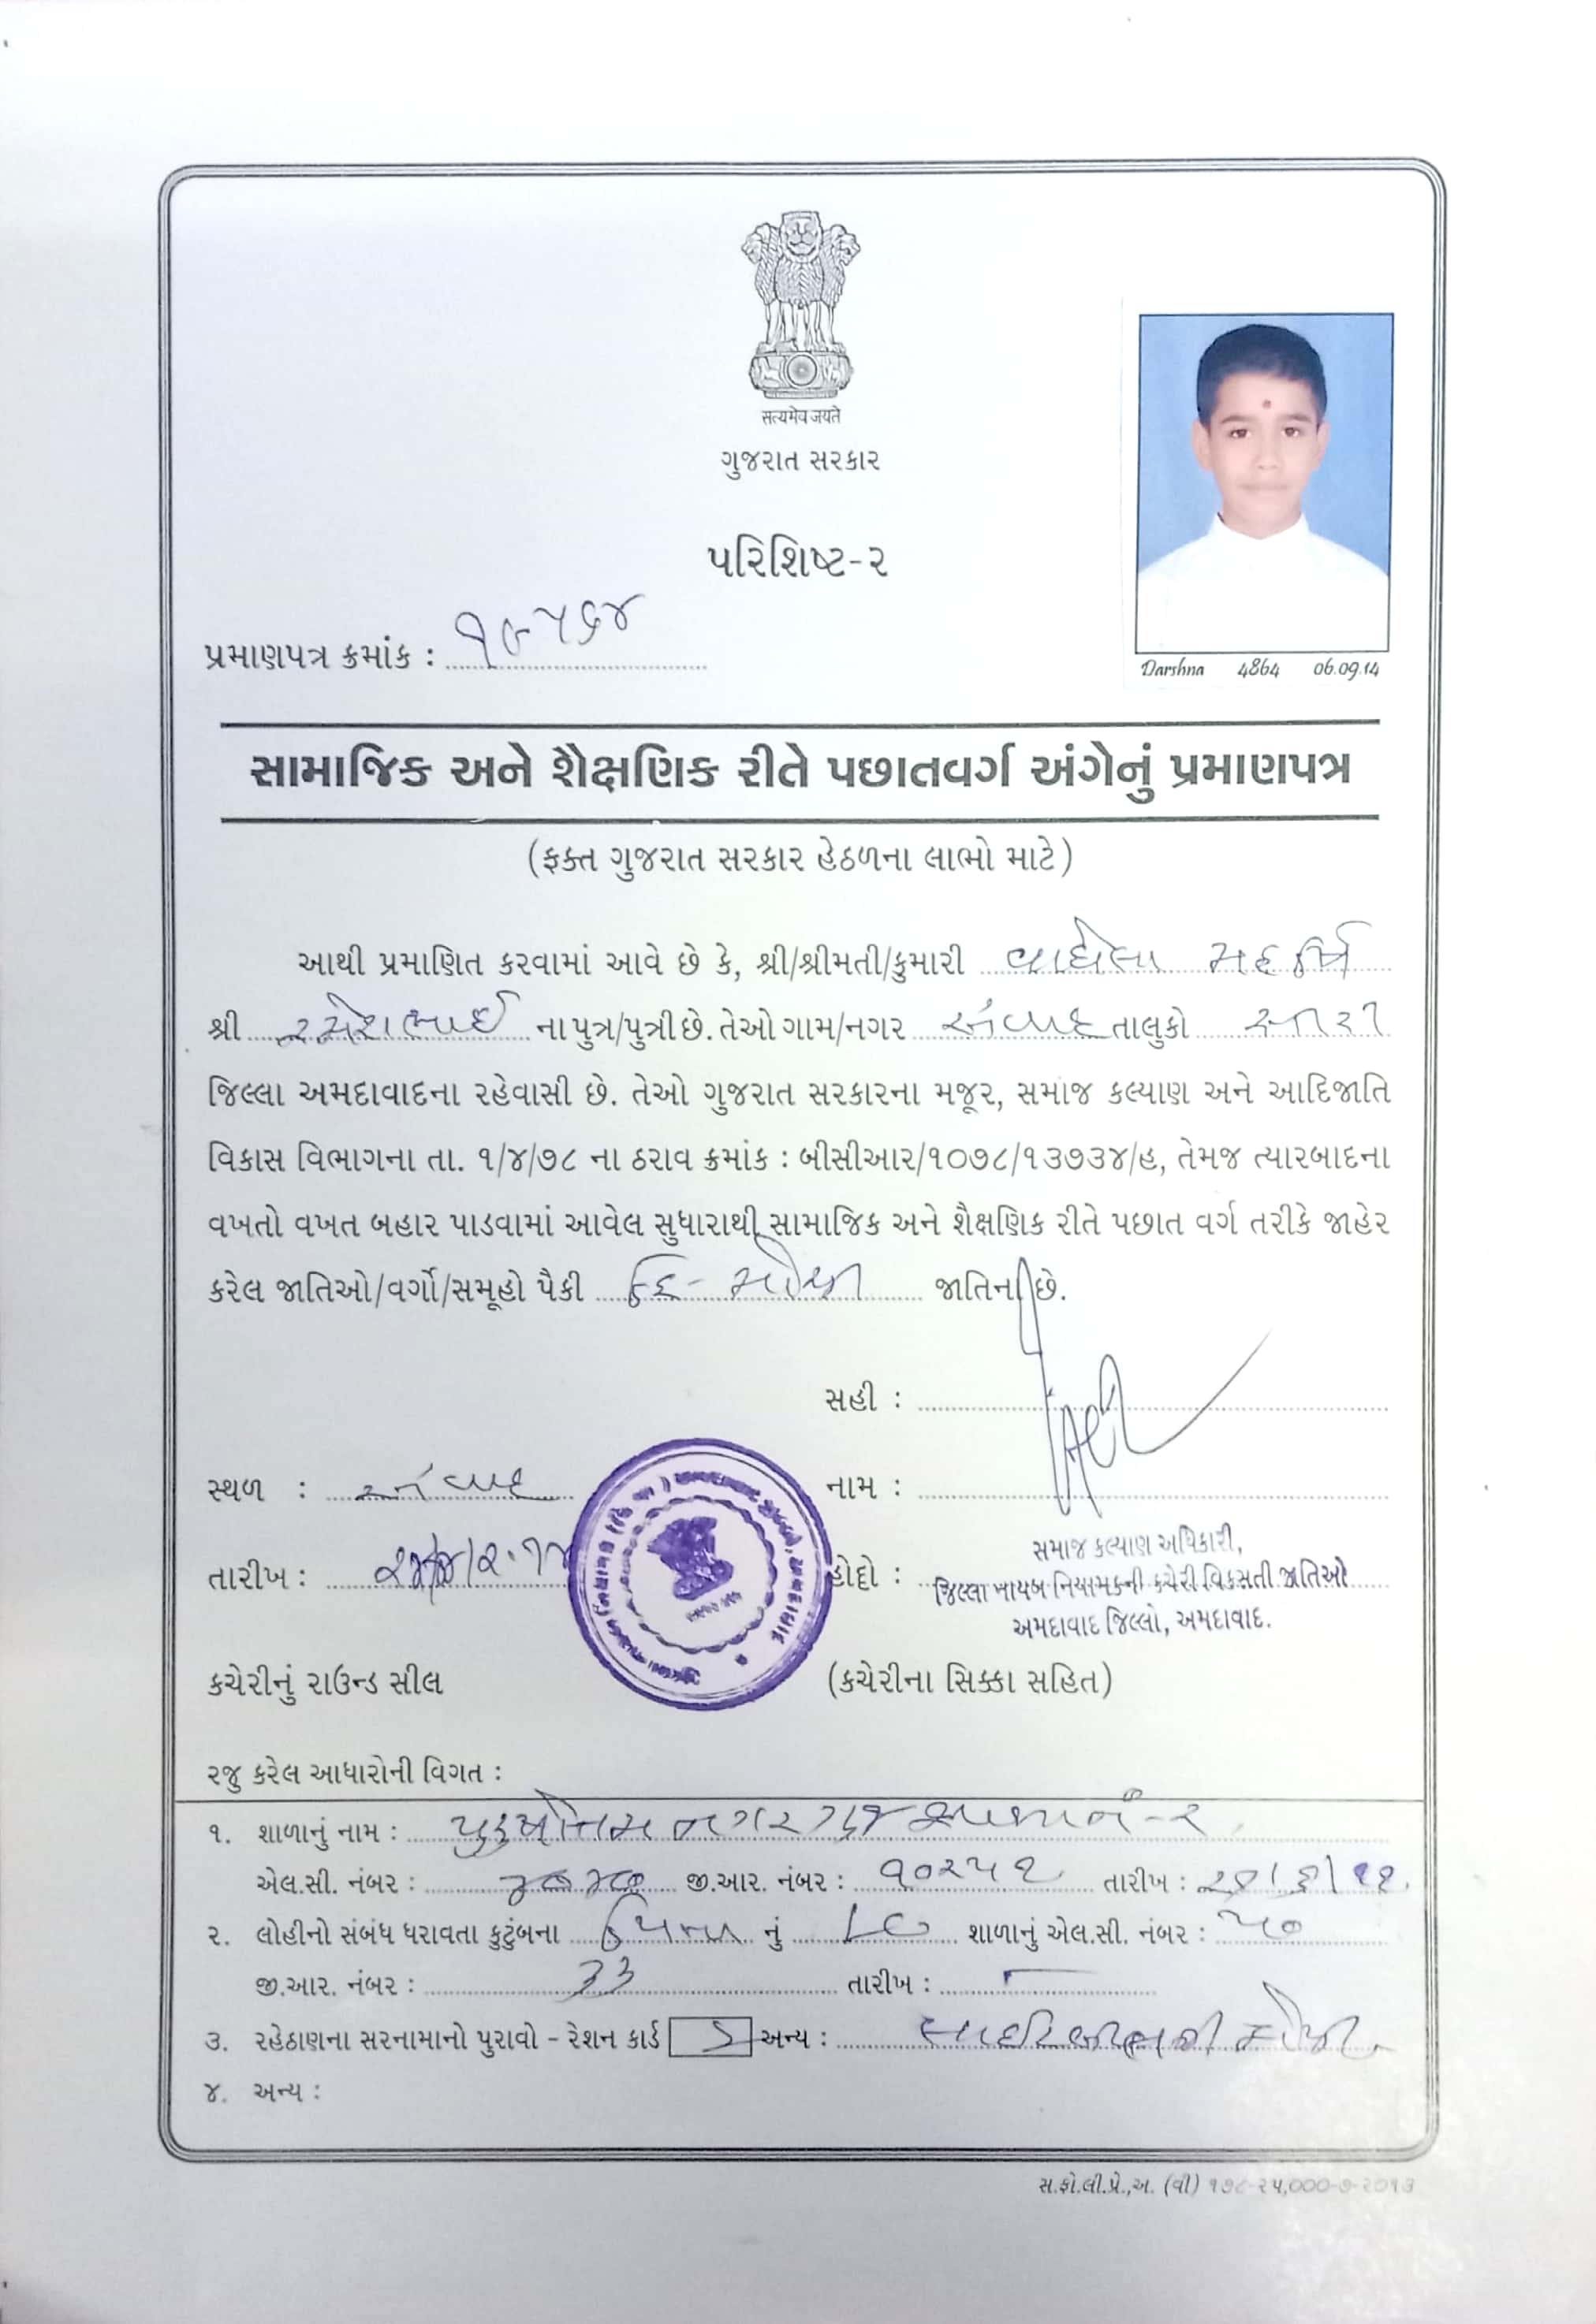 सत्यमेव जयते
ગુજરાત સરકાર
પરિશિષ્ટ-૨
પ્રમાણપત્ર ક્રમાંક :
Darshna 4864 06.09.14
સામાજિક અને શૈક્ષણિક રીતે પછાતવર્ગ અંગેનું પ્રમાણપત્ર
(ફક્ત ગુજરાત સરકાર હેઠળના લાભો માટે)
આથી પ્રમાણિત કરવામાં આવે છે કે, શ્રી/શ્રીમતી/કુમારી વાઘેલા મહર્ષિ
શ્રી રમેશભાઈ ના પુત્ર/પુત્રી છે. તેઓ ગામ/નગર તાલુકો
જિલ્લા અમદાવાદના રહેવાસી છે. તેઓ ગુજરાત સરકારના મજૂર, સમાજ કલ્યાણ અને આદિજાતિ
વિકાસ વિભાગના તા. ૧/૪/૭૮ ના ઠરાવ ક્રમાંક : બીસીઆર/૧૦૭૮/૧૩૭૩૪/હ, તેમજ ત્યારબાદના
વખતો વખત બહાર પાડવામાં આવેલ સુધારાથી સામાજિક અને શૈક્ષણિક રીતે પછાત વર્ગ તરીકે જાહેર
કરેલ જાતિઓ/વર્ગો/સમૂહો પૈકી હિ-મોચી જાતિના છે.
સહી :
સ્થળ :
નામ :
તારીખ :
હોદ્દો :
સમાજ કલ્યાણ અધિકારી,
જિલ્લા નાયબ નિયામકની કચેરી વિકસતી જાતિઓ
અમદાવાદ જિલ્લો, અમદાવાદ.
કચેરીનું રાઉન્ડ સીલ
(કચેરીના સિક્કા સહિત)
રજુ કરેલ આધારોની વિગત :
૧. શાળાનું નામ : પુરૂષોત્તમનગર ગુજ શાળા નં-૨
એલ.સી. નંબર : જી.આર. નંબર : ૧૦૨૫૧ તારીખ :
૨. લોહીનો સંબંધ ધરાવતા કુટુંબના પિતા નું LC શાળાનું એલ.સી. નંબર : ૫૦
જી.આર. નંબર : 33 તારીખ :
૩. રહેઠાણના સરનામાનો પુરાવો – રેશન કાર્ડ અન્ય :
૪. અન્ય :
સ.ફો.લી.પ્રે.,અ. (વી) ૧૭૮-૨૫,૦૦૦-૭-૨૦૧૩